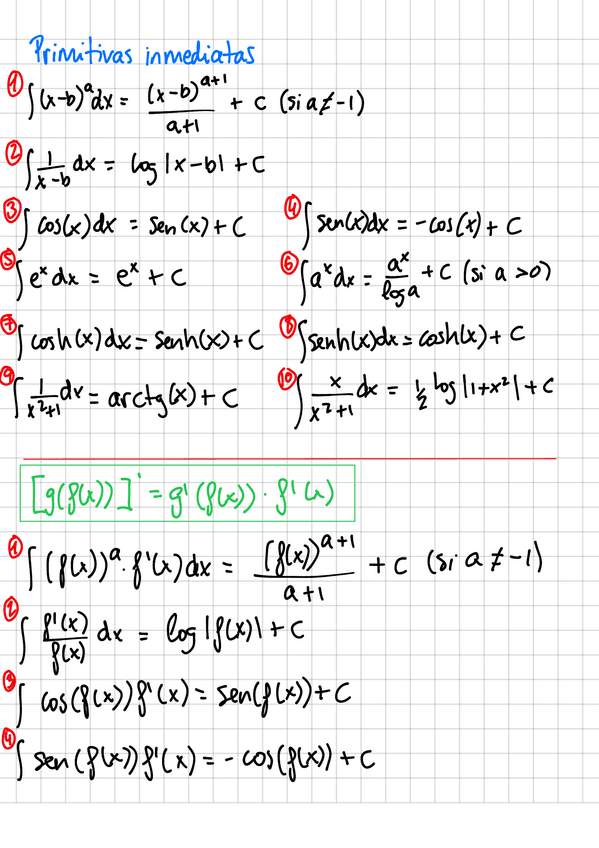 Primitivas inmediatas
① ∫(x-b)^a dx = (x-b)^(a+1)/(a+1) + C (si a≠-1)
② ∫ 1/(x-b) dx = log|x-b| + C
③ ∫ cos(x) dx = sen(x) + C ④ ∫ sen(x) dx = -cos(x) + C
⑤ ∫ e^x dx = e^x + C ⑥ ∫ a^x dx = a^x/log a + C (si a >0)
⑦ ∫ cosh(x) dx = senh(x) + C ⑧ ∫ senh(x) dx = cosh(x) + C
⑨ ∫ 1/(x^2+1) dx = arctg(x) + C ⑩ ∫ x/(x^2+1) dx = 1/2 log|1+x^2| + C
[g(f(x))]' = g'(f(x)) · f'(x)
① ∫ (f(x))^a · f'(x) dx = (f(x))^(a+1)/(a+1) + C (si a ≠ -1)
② ∫ f'(x)/f(x) dx = log|f(x)| + C
③ ∫ cos(f(x)) f'(x) = sen(f(x)) + C
④ ∫ sen(f(x)) f'(x) = -cos(f(x)) + C